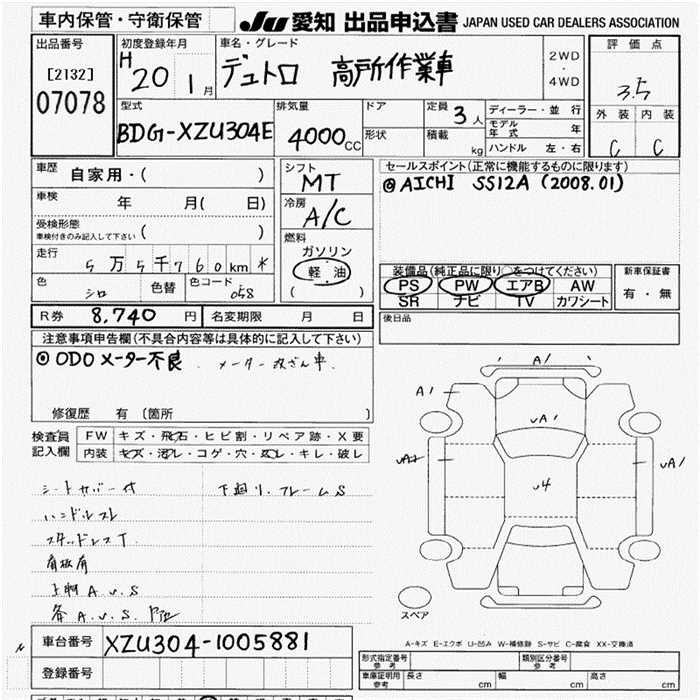 車内保管・守衛保管
JU 愛知 出品申込書 JAPAN USED CAR DEALERS ASSOCIATION
出品番号
[2132]
07078
初度登録年月
H 20 1月
車名・グレード
デュトロ 高所作業車
2WD
・
4WD
評価点
3.5
外装 内装
C C
型式
BDG-XZU304E
排気量
4000cc
ドア
形状
定員 3人
積載 kg
ディーラー・並行
モデル年式 年
ハンドル 左・右
車歴 自家用・( )
車検 年 月( 日)
受検形態
車検付きのみ記入して下さい ( )
走行 5万5千760km *
色 シロ 色替 色コード 058
シフト
MT
冷房
A/C
燃料
ガソリン
軽油
( )
セールスポイント(正常に機能するものに限ります)
◎AICHI SS12A (2008.01)
装備品(純正品に限り○をつけてください)
PS PW エアB AW
SR ナビ TV カワシート
新車保証書
有・無
R券 8,740 円 名変期限 月 日
後日品
注意事項申告欄(不具合内容等は具体的に記入して下さい)
◎ODOメーター不良 メーター改ざん車.
修復歴 有 〔箇所 〕
検査員記入欄
FW キズ・飛石・ヒビ割・リペア跡・X要
内装 キズ・汚レ・コゲ・穴・スレ・キレ・破レ
シートカバー付 下廻り、フレームS
ハンドルスレ
スタッドレスT
看板有
上物A.U.S
各A.U.S.
A1
A1
UA1
UA2
UA1
U4
スペア
A-キズ E-エクボ U-凹み W-補修跡 S-サビ C-腐食 XX-交換済
車台番号 XZU304-1005881
登録番号
形式指定番号 参考
類別区分番号 参考
車庫証明用 参考 長さ cm 幅 cm 高さ cm